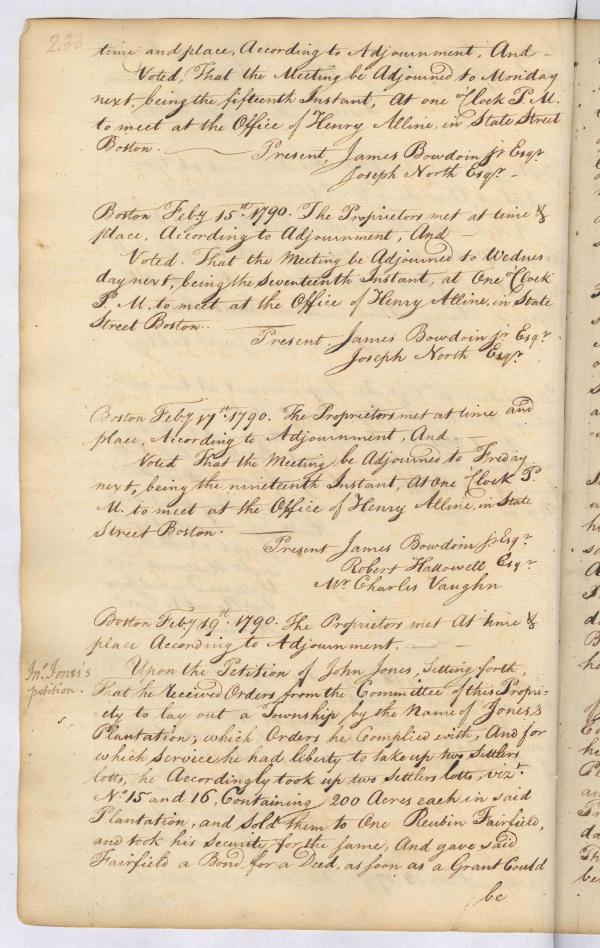 233
time and place, According to Adjournment, And
Voted, That the Meeting be Adjourned to Monday
next, being the fifteenth Instant, At one oClock P.M.
to meet at the Office of Henry Alline, in State Street
Boston.
Present, James Bowdoin jr Esqr
Joseph North Esqr
Boston Feby 15th 1790. The Proprietors met at time &
place, According to Adjournment, And
Voted. That the Meeting be Adjourned to Wednes-
day next, being the Seventeenth Instant, at One oClock
P. M. to meet at the Office of Henry Alline, in State
Street Boston.
Present, James Bowdoin jr Esqr
Joseph North Esqr
Boston Feby 17th 1790. The Proprietors met at time and
place, According to Adjournment, And
Voted That the Meeting be Adjourned to Friday
next, being the nineteenth Instant, At One oClock P.
M. to meet at the Office of Henry Alline, in State
Street Boston.
Present James Bowdoin jr Esqr
Robert Hallowell Esqr
Mr Charles Vaughn
Boston Feby 19th 1790. The Proprietors met At time &
place According to Adjournment.
Jno Jones's
petition.
Upon the Petition of John Jones, Setting forth,
That he received Orders from the Committee of this Propri-
ety to lay out a Township by the Name of Jones's
Plantation; which Orders he Complied with, And for
which Service he had liberty to take up two Settlers
lotts, he Accordingly took up two Settlers lotts, vizt
No 15 and 16, Containing 200 Acres each in said
Plantation, and Sold them to One Reubin Fairfield,
and took his Security for the same, And gave said
Fairfield a Bond for a Deed, as soon as a Grant Could
be